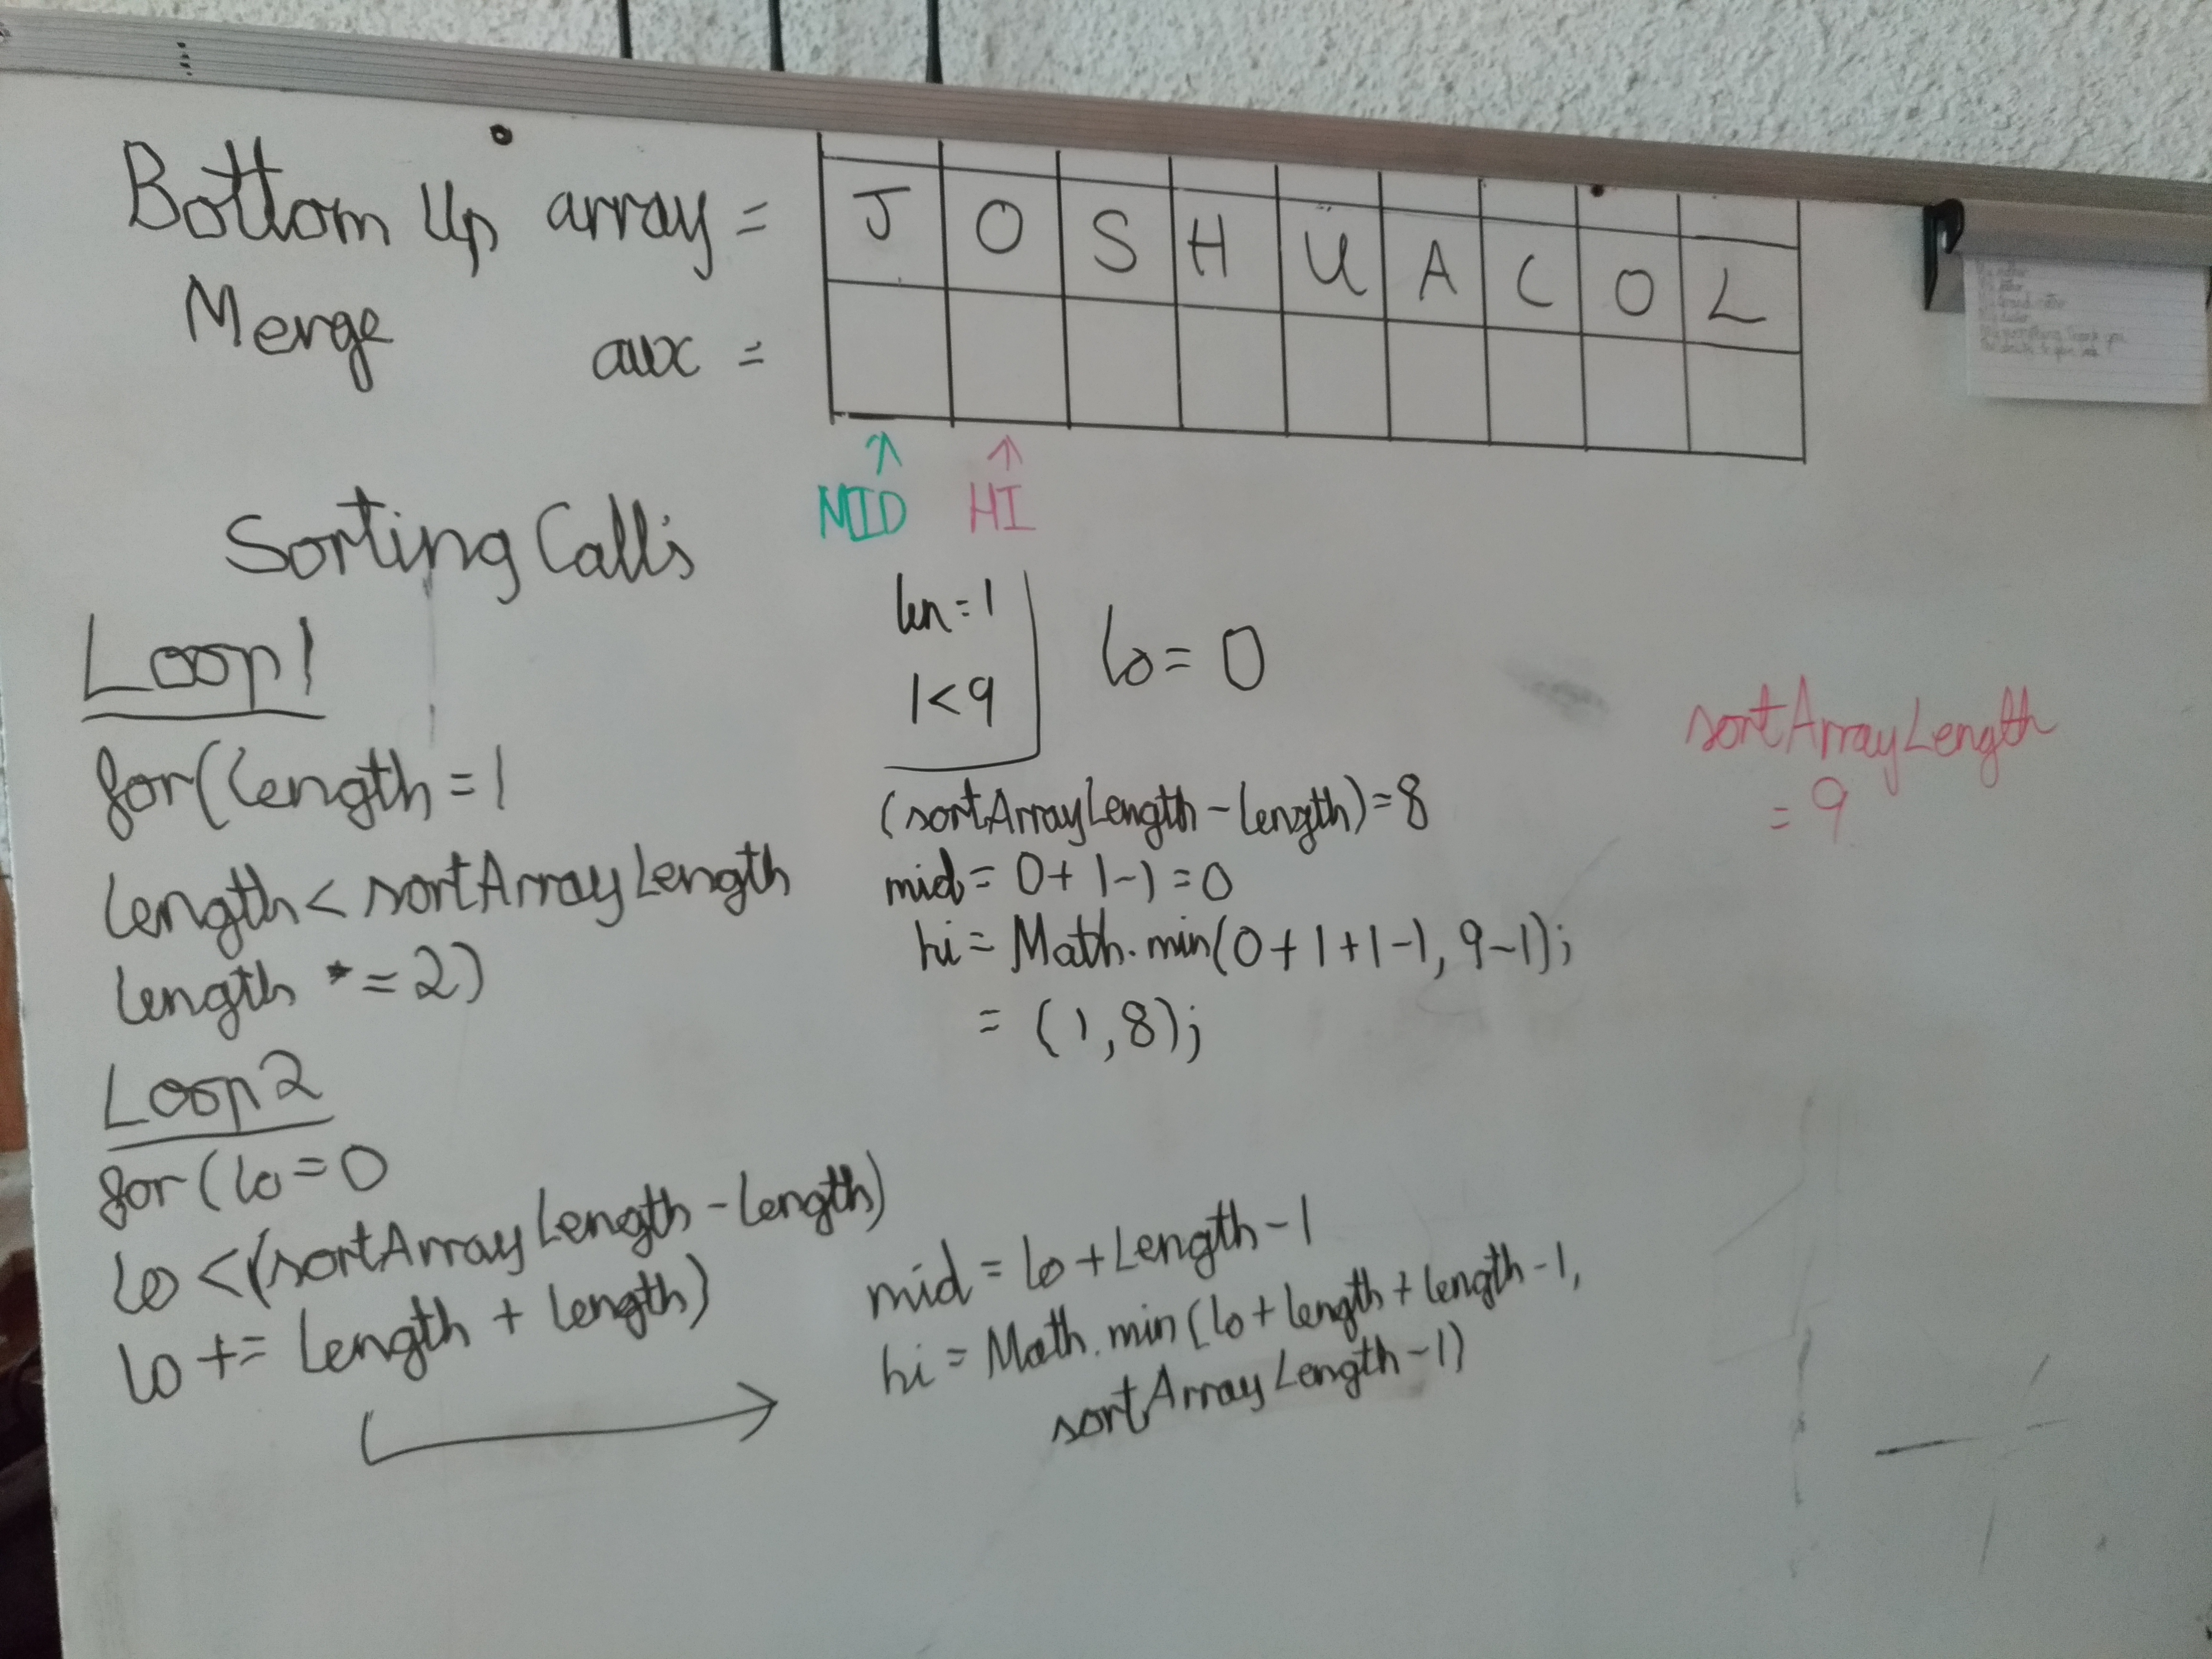 Bottom Up array =
J O S H U A C O L
Merge
aux =
MID HI
Sorting Calls
Loop 1
for(length = 1
length < sortArrayLength
length *= 2)
Loop 2
for (lo = 0
lo < (sortArrayLength - length)
lo += length + length)
len = 1
1 < 9
lo = 0
(sortArrayLength - length) = 8
mid = 0 + 1 - 1 = 0
hi = Math.min(0 + 1 + 1 - 1, 9 - 1);
= (1, 8);
mid = lo + Length - 1
hi = Math.min(lo + length + length - 1,
sortArrayLength - 1)
sortArrayLength
= 9